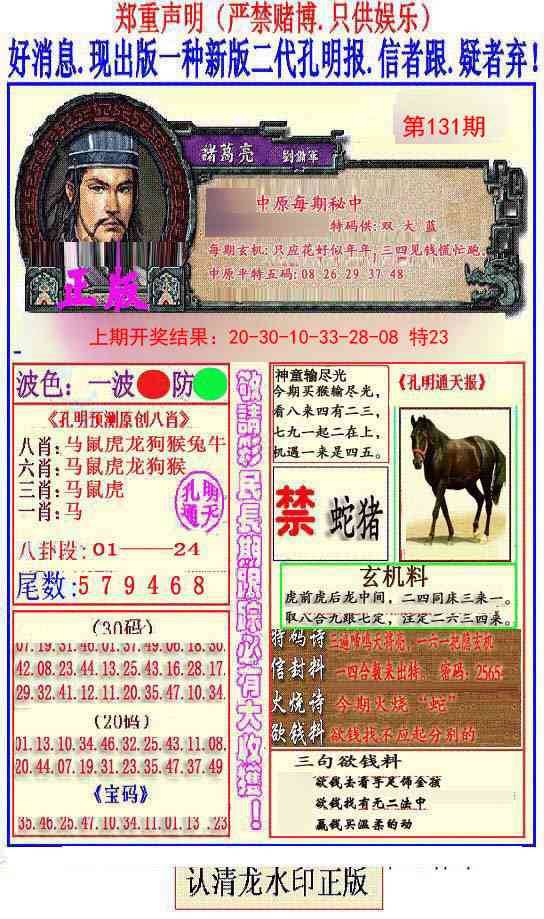 郑重声明（严禁赌博.只供娱乐）
好消息.现出版一种新版二代孔明报.信者跟.疑者弃!
第131期
諸葛亮 劉備軍
中原每期秘中
特码供:双 大 蓝
每期玄机:只应花好似年年,三四见钱慌忙跑.
中原平特五码:08 26 29 37 48
正版
上期开奖结果：20-30-10-33-28-08 特23
波色：一波 防
《孔明预测原创八肖》
八肖:马鼠虎龙狗猴兔牛
六肖:马鼠虎龙狗猴
三肖:马鼠虎
一肖:马
孔明
通天
八卦段:01——24
尾数:579468
(30码)
07.19.31.46.01.37.49.06.18.30.
42.08.23.44.13.25.43.16.28.17.
29.32.41.12.11.20.35.47.10.34.
(20码)
01.13.10.34.46.32.25.43.11.08.
20.44.07.19.31.23.35.47.37.49
《宝码》
35.46.25.47.10.34.11.01.13 .23
敬請彩民長期跟踪必有大收獲!
神童输尽光
今期买猴输尽光，
看八来四有二三，
七九一起二在上，
机遇一来是四五。
《孔明通天报》
禁
蛇猪
玄机料
虎前虎后龙中间，二四同床三来一。
取八合九跟七定，注定二六三四来。
特码诗
信封料 一四合数来出特. 密码：2565.
火烧诗 今期火烧“蛇”
欲钱料 欲钱找不应起分别的
三句欲钱料
欲钱去看手足饰金孩
欲钱找有无二法中
赢钱买温柔的动
认清龙水印正版